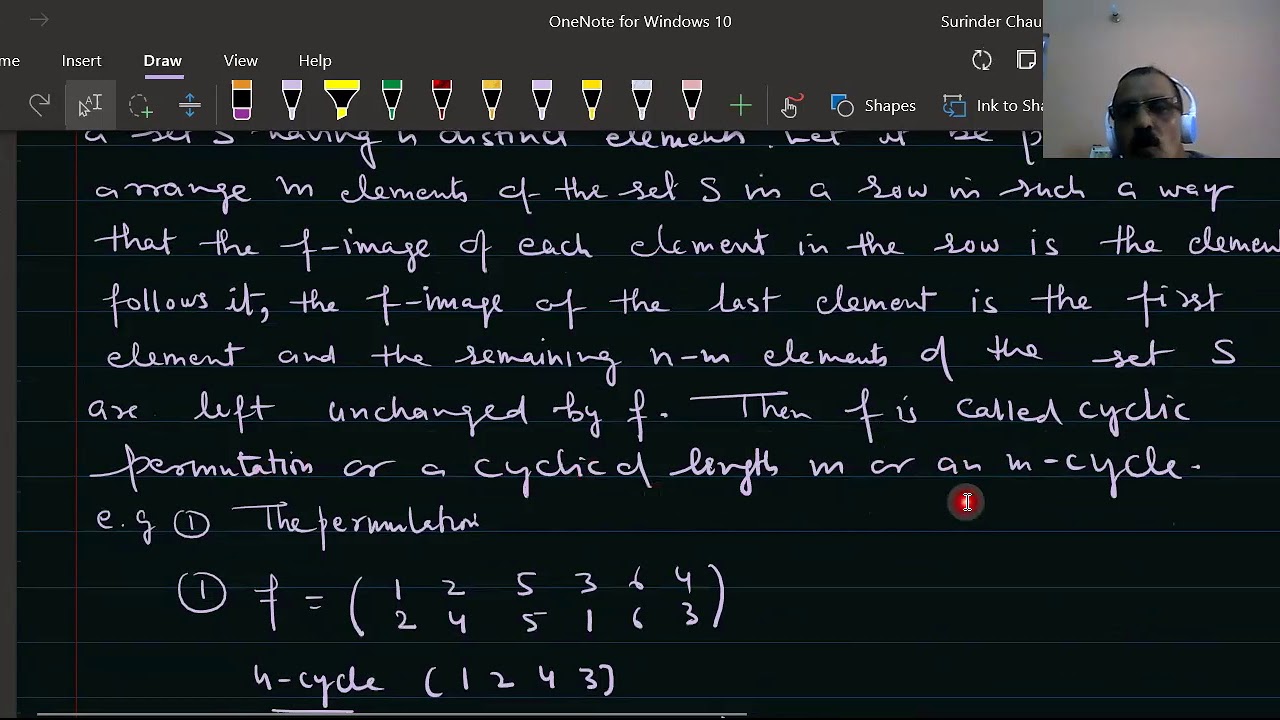 OneNote for Windows 10
Surinder Chau
me Insert Draw View Help
Shapes Ink to Sha
a set S having n distinct elements. Let it be p
arrange m elements of the set S in a row in such a way
that the f-image of each element in the row is the elemen
follows it, the f-image of the last element is the first
element and the remaining n-m elements of the set S
are left unchanged by f. Then f is called cyclic
permutation or a cyclic of length m or an m-cycle.
e.g ① The permutation
① f = ( 1 2 5 3 6 4 )
2 4 5 1 6 3
4-cycle ( 1 2 4 3)